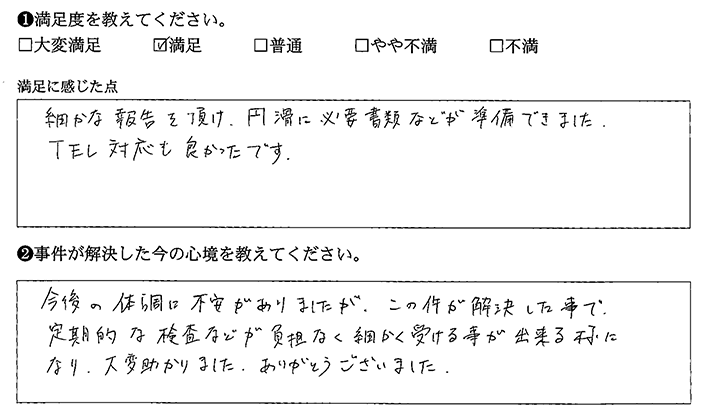 ❶満足度を教えてください。
□大変満足 ☑満足 □普通 □やや不満 □不満
満足に感じた点
細かな報告を頂け、円滑に必要書類などが準備できました。
TEL対応も良かったです。
❷事件が解決した今の心境を教えてください。
今後の体調に不安がありましたが、この件が解決した事で、
定期的な検査などが負担なく細かく受ける事が出来る様に
なり、大変助かりました。ありがとうございました。